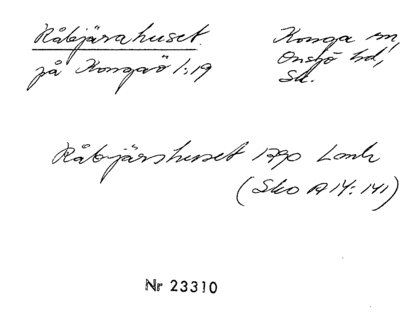 Råbjärahuset.
på Kongaö 1:19
Konga sn,
Onsjö hd,
Sk.
Råbjärshuset 1790 Lank
(Sko A 14: 141)
Nr 23310